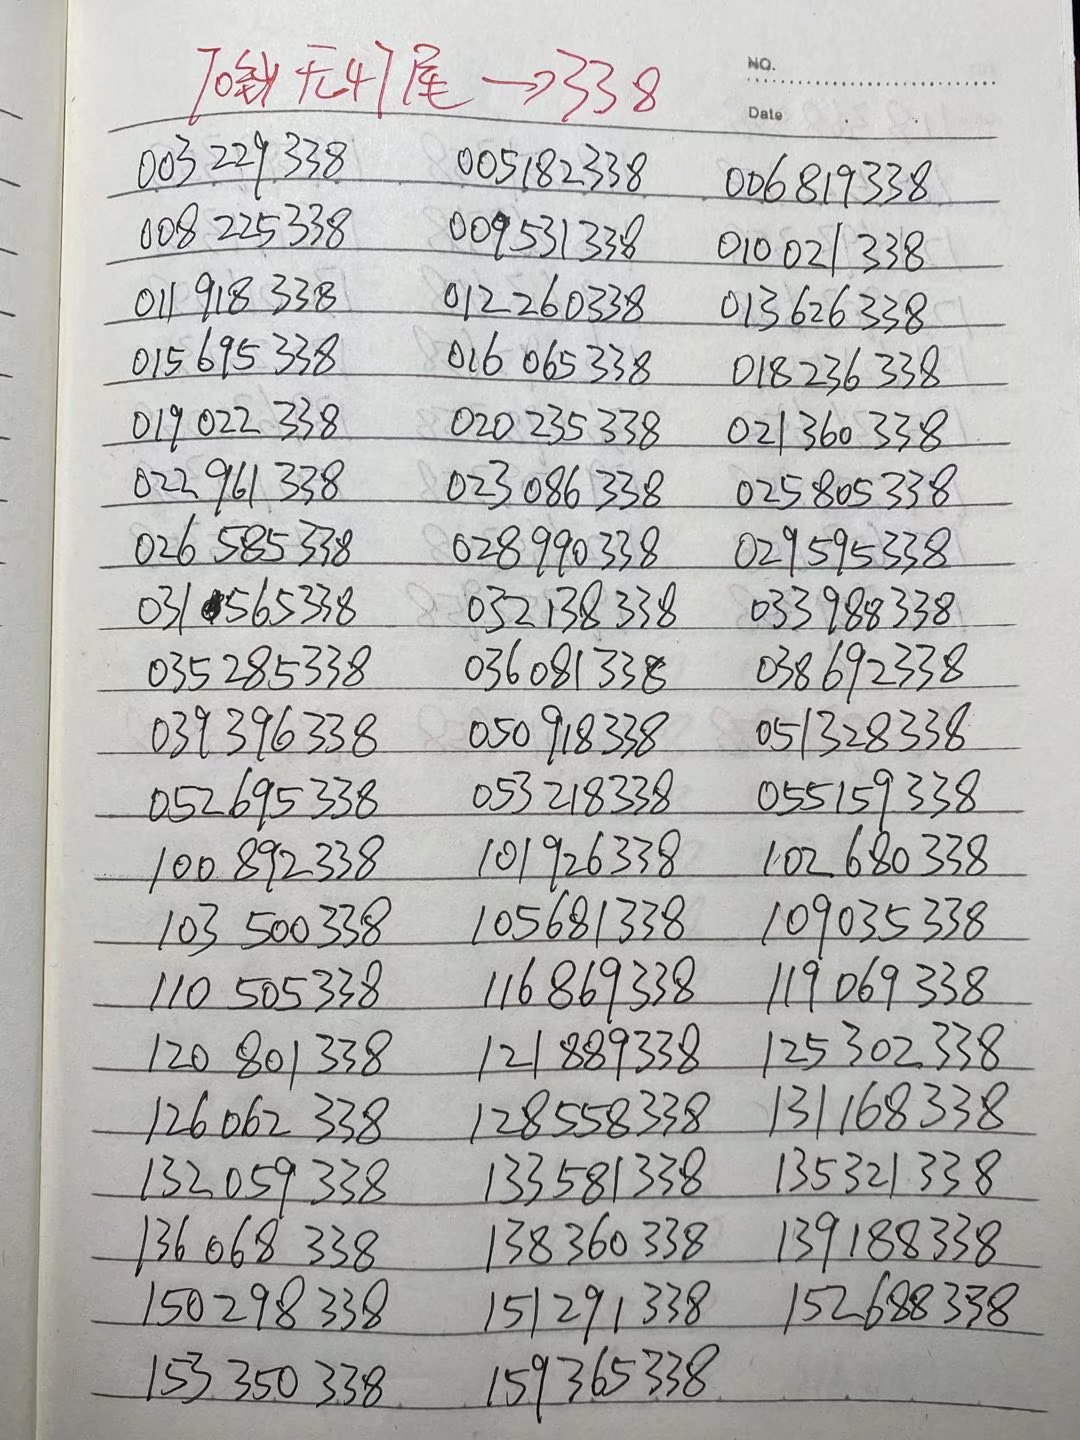 70 无47尾 → 338
NO.
Date
003229338 005182338 006819338
008225338 009531338 010021338
011918338 012260338 013626338
015695338 016065338 018236338
019022338 020235338 021360338
022961338 023086338 025805338
026585338 028990338 029595338
031565338 032138338 033988338
035285338 036081338 038692338
039396338 050918338 051328338
052695338 053218338 055159338
100892338 101926338 102680338
103500338 105681338 109035338
110505338 116869338 119069338
120801338 121889338 125302338
126062338 128558338 131168338
132059338 133581338 135321338
136068338 138360338 139188338
150298338 151291338 152688338
153350338 159365338